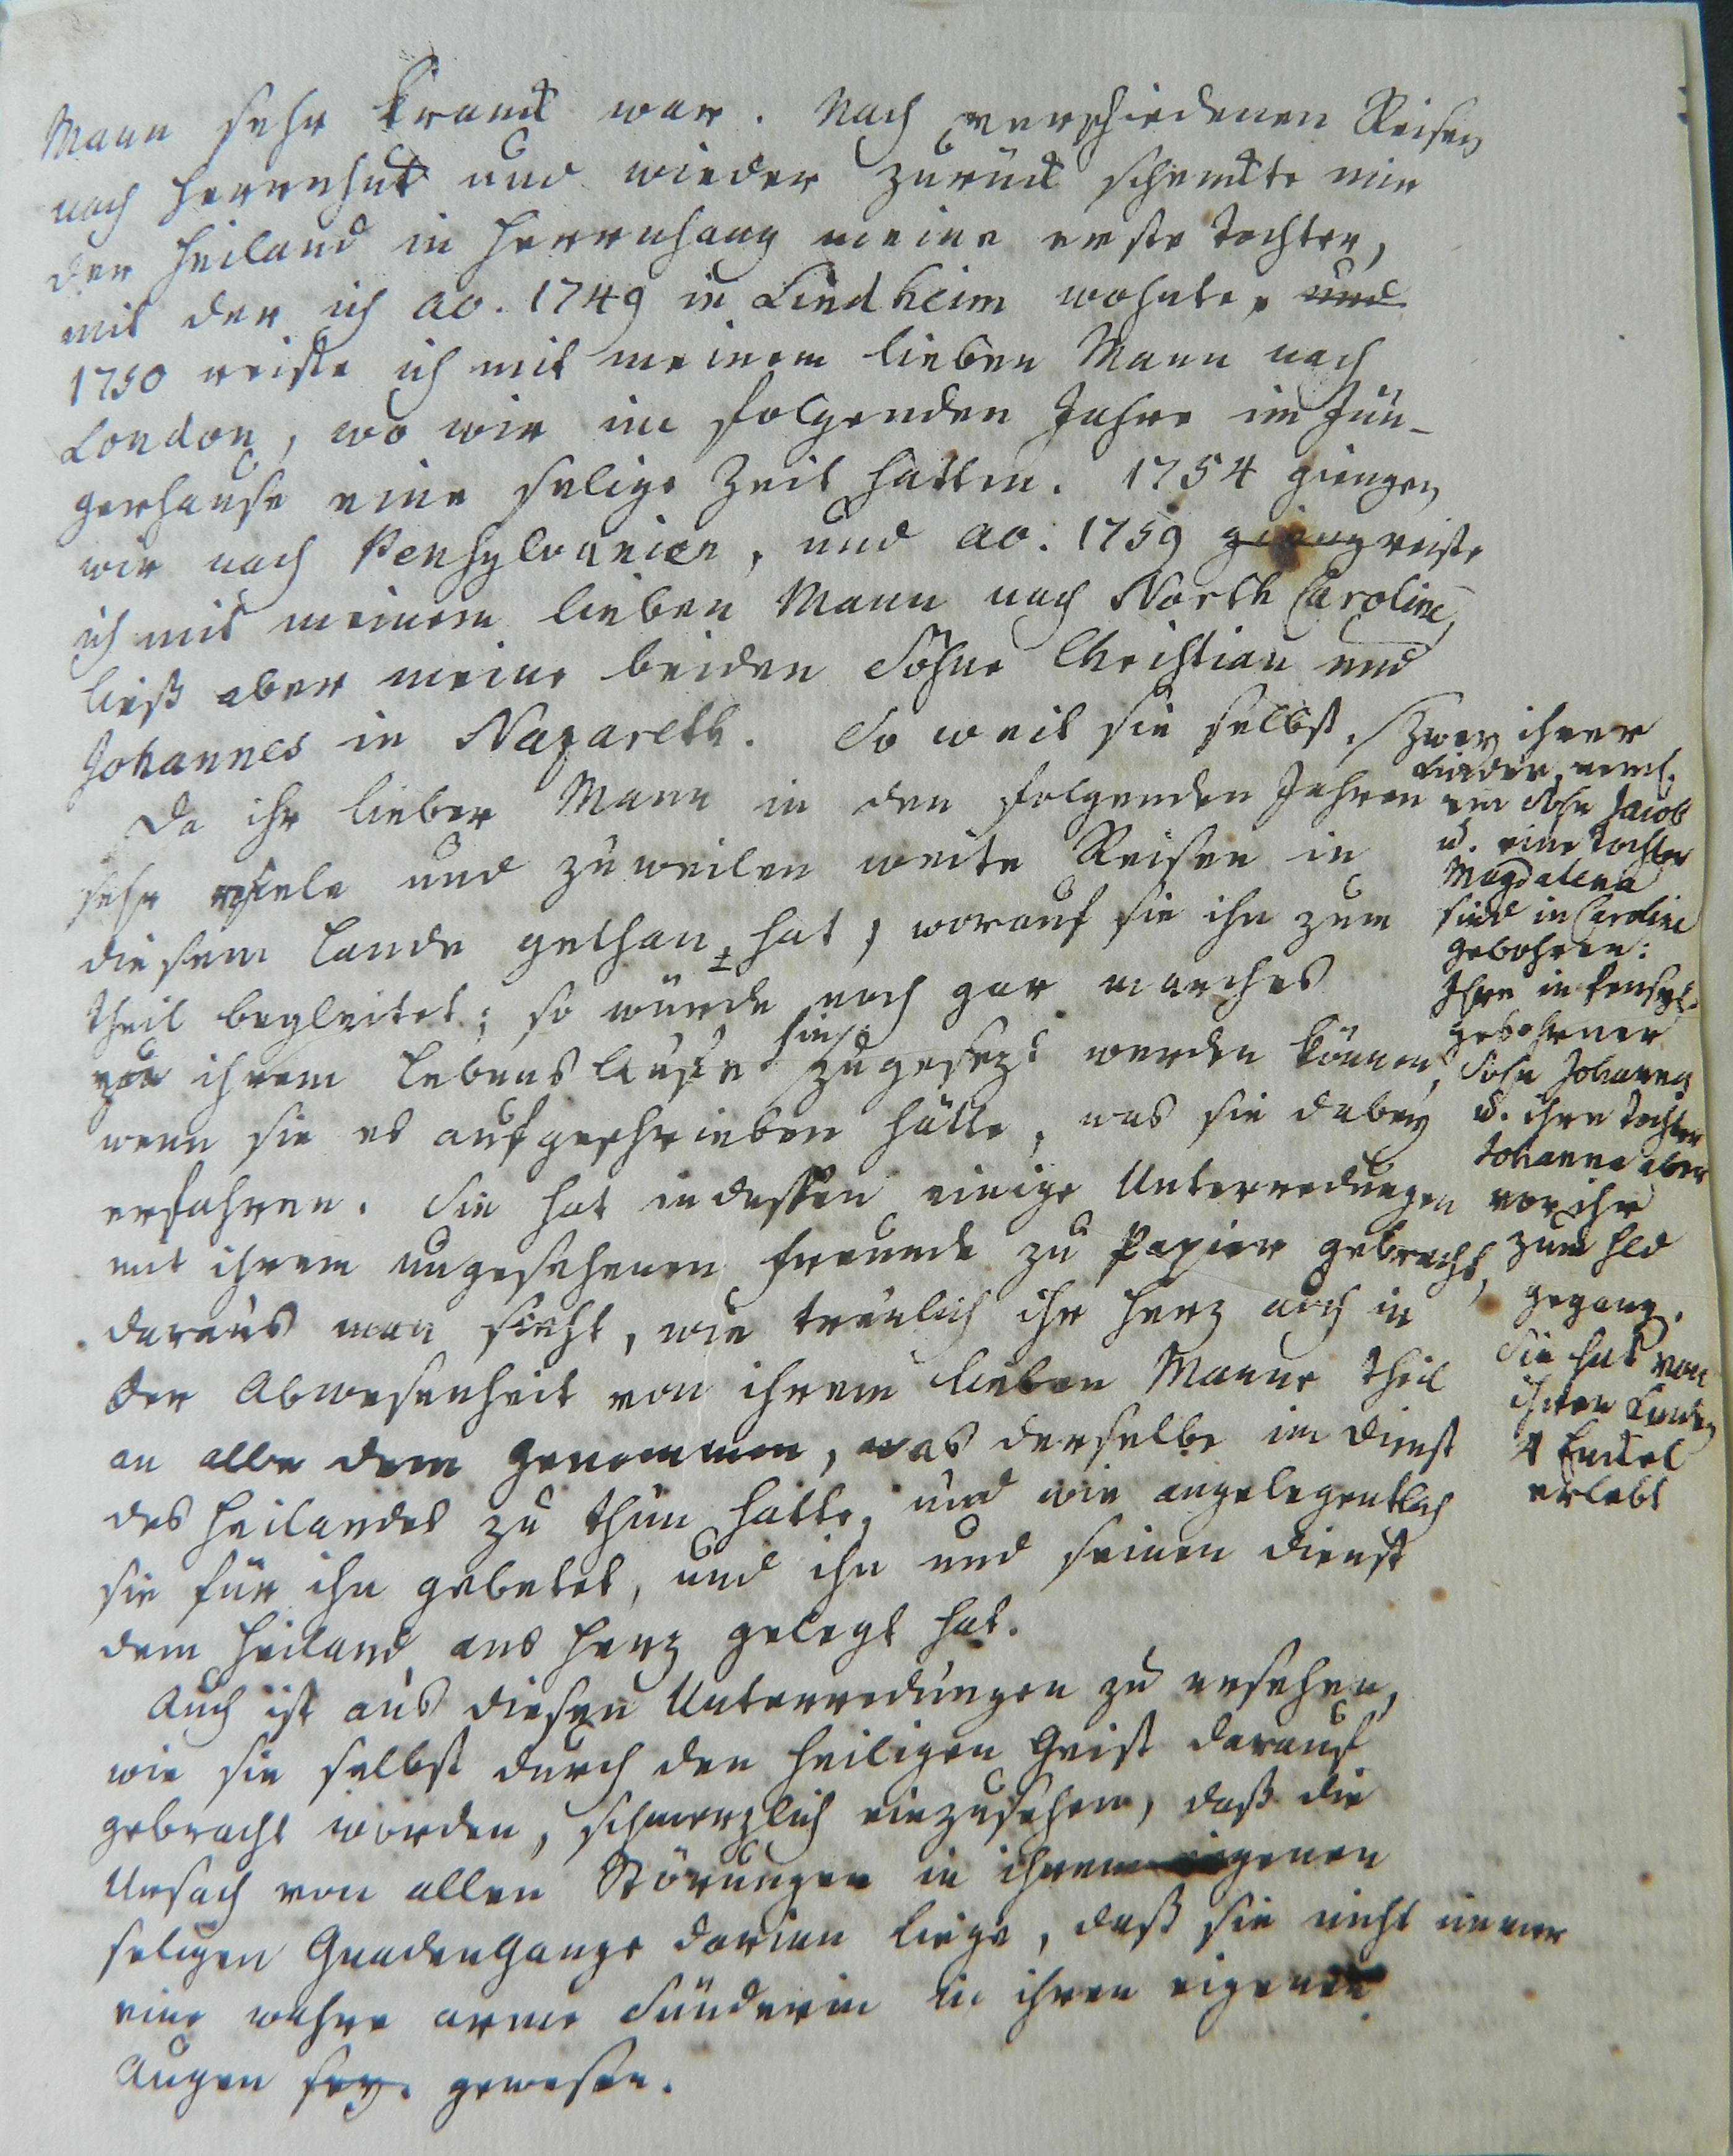 Mann sehr kranck war. Nach verschiedenen Reisen
nach Herrnhut und wieder zurück schenckte mir
der Heiland in Herrnhaag meine erste Tochter,
mit der ich ao. 1749 in Lindheim wohnte, und
1750 reiste ich mit meinem lieben Mann nach
London, wo wir im folgenden Jahre im Jün-
gerhause eine selige Zeit hatten. 1754 giengen
wir nach Pensylvanien, und ao. 1759 gieng reiste
ich mit meinem lieben Mann nach North Caroline,
ließ aber meine beiden Söhne Christian und
Johannes in Nazareth. So weit sie selbst.
Da ihr lieber Mann in den folgenden Jahren
sehr viele und zuweilen weite Reisen in
diesem Lande gethan hat, worauf sie ihn zum
theil begleitet; so würde noch gar manches
von ihrem Lebenslaufe hinzugesezt werden können,
wenn sie es aufgeschrieben hätte, was sie dabey
erfahren. Sie hat indessen einige Unterredungen
mit ihrem ungesehenen Freunde zu Papier gebracht,
daraus man sieht, wie treulich ihr Herz auch in
der Abwesenheit von ihrem lieben Manne theil
an alle dem genommen, was derselbe im Dienst
des Heilandes zu thun hatte, und wie angelegentlich
sie für ihn gebetet, und ihn und seinen Dienst
dem Heiland ans Herz gelegt hat.
Auch ist aus diesen Unterredungen zu ersehen,
wie sie selbst durch den heiligen Geist darauf
gebracht worden, schmerzlich einzusehen, daß die
Ursach von allen Störungen in ihrem eigenen
seligen Gnadengange darinn liege, daß sie nicht immer
eine wahre arme Sünderin in ihren eigenen
Augen sey. gewesen.
Zwey ihrer
Kinder, neml.
ein Sohn Jacob
u. eine Tochter
Magdalena
sind in Caroline
gebohren:
Ihr in Pensyl.
gebohrner
Sohn Johannes
u. ihre Tochter
Johanna aber
vor ihr
zum Hld
gegang.
Sie hat von
ihren Kindern
4 Enckel
erlebt